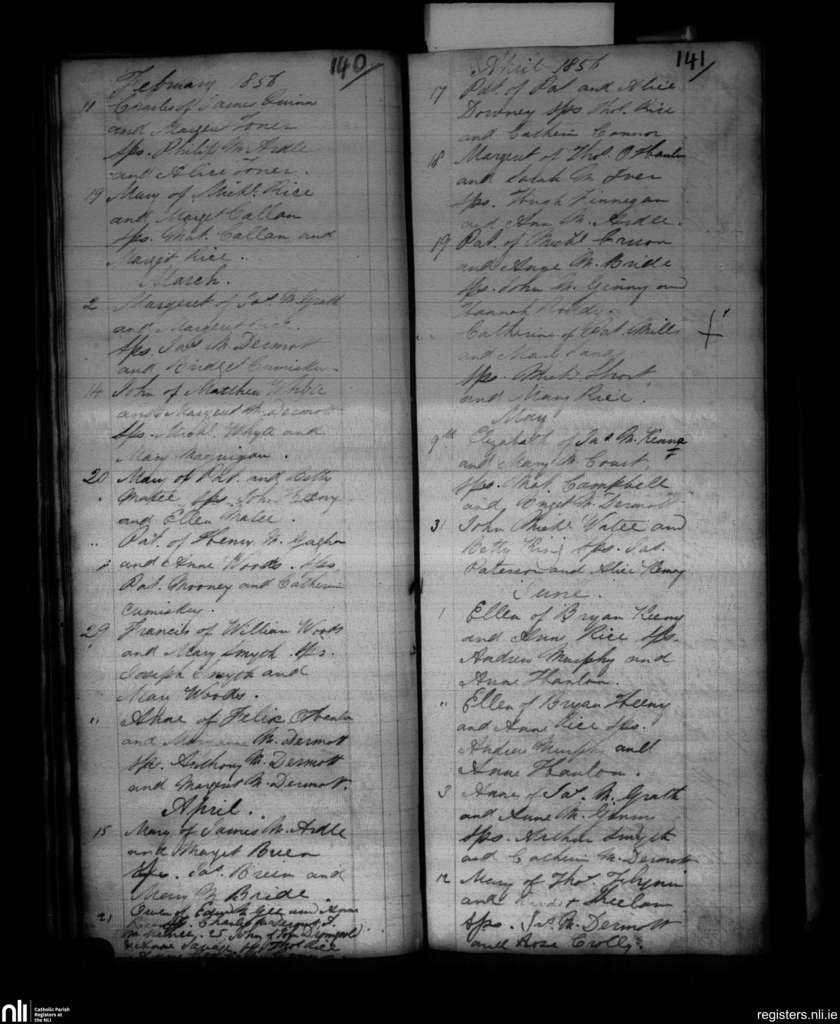 140
February 1856
11 Charles of James Quinn
and Margert Toner
Sps. Philip McArdle
and Alice Toner.
19 Mary of Michl. Rice
and Marget Callan
Sps. Mat. Callan and
Marget Rice.
March.
2 Margeret of Jas McGrath
and Margeret
Sps. Jas McDermott
and Bridget Cumiskey
14 John of Matthew White
and Margert McDermott
Sps. Michl. Whyte and
Mary Maguigan.
20 Mary of Pat. and Betty
Malee Sps. John Heeny
and Ellen Malee.
" Pat. of Henry
and Anne Woods. Sps
Pat. Mooney and Catherin
Cumiskey.
29 Francis of William Woods
and Mary Smyth Sps.
Joseph Smyth and
Mary Woods.
" Anne of Felix OHanlon
and McDermott
Sps. Anthony McDermott
and Margert McDermott.
April.
15 Mary of James McArdle
and Marget Breen
Sps. Jas. Breen and
Mary McBride
21 Owen of
Sps. Charles
25 John of
& Anne Savage Sps Thos Rice
141
April 1856
17 Pat. of Pat and Alice
Downey Sps Thos. Rice
and Catherin Connor
18 Margeret of Thos. O Hanlon
and Sarah McIver
Sps. Hugh Finnegan
and Ann McArdle.
19 Pat. of Michl.
and Anne McBride
Sps. John McGinny and
Hannah
Catherine of Pat. Mills
and
Sps. Michl Short
and Mary Rice.
May
9th Elizabeth of Jas McKenna
and Mary McCourt,
Sps. Mat. Campbell
and Briget McDermott
31 John Michl Valee and
Betty King Sps. Jas.
Paterson and Alice Keeny
June.
1 Ellen of Bryan Keeny
and Ann Rice Sps.
Andrew Murphy and
Anne Hanlon.
" Ellen of Bryan Heeny
and Anne Rice Sps.
Andrew Murphy and
Anne Hanlon.
3 Anne of Jas. McGrath
and Anne McGinn
Sps. Arthur Smyth
and Catherin McDermott
12 Mary of Thos. Flynn
and Sheelan
Sps. Jas McDermott
and Rose Crolly.
nli
Catholic Parish
Registers at
the NLI
registers.nli.ie